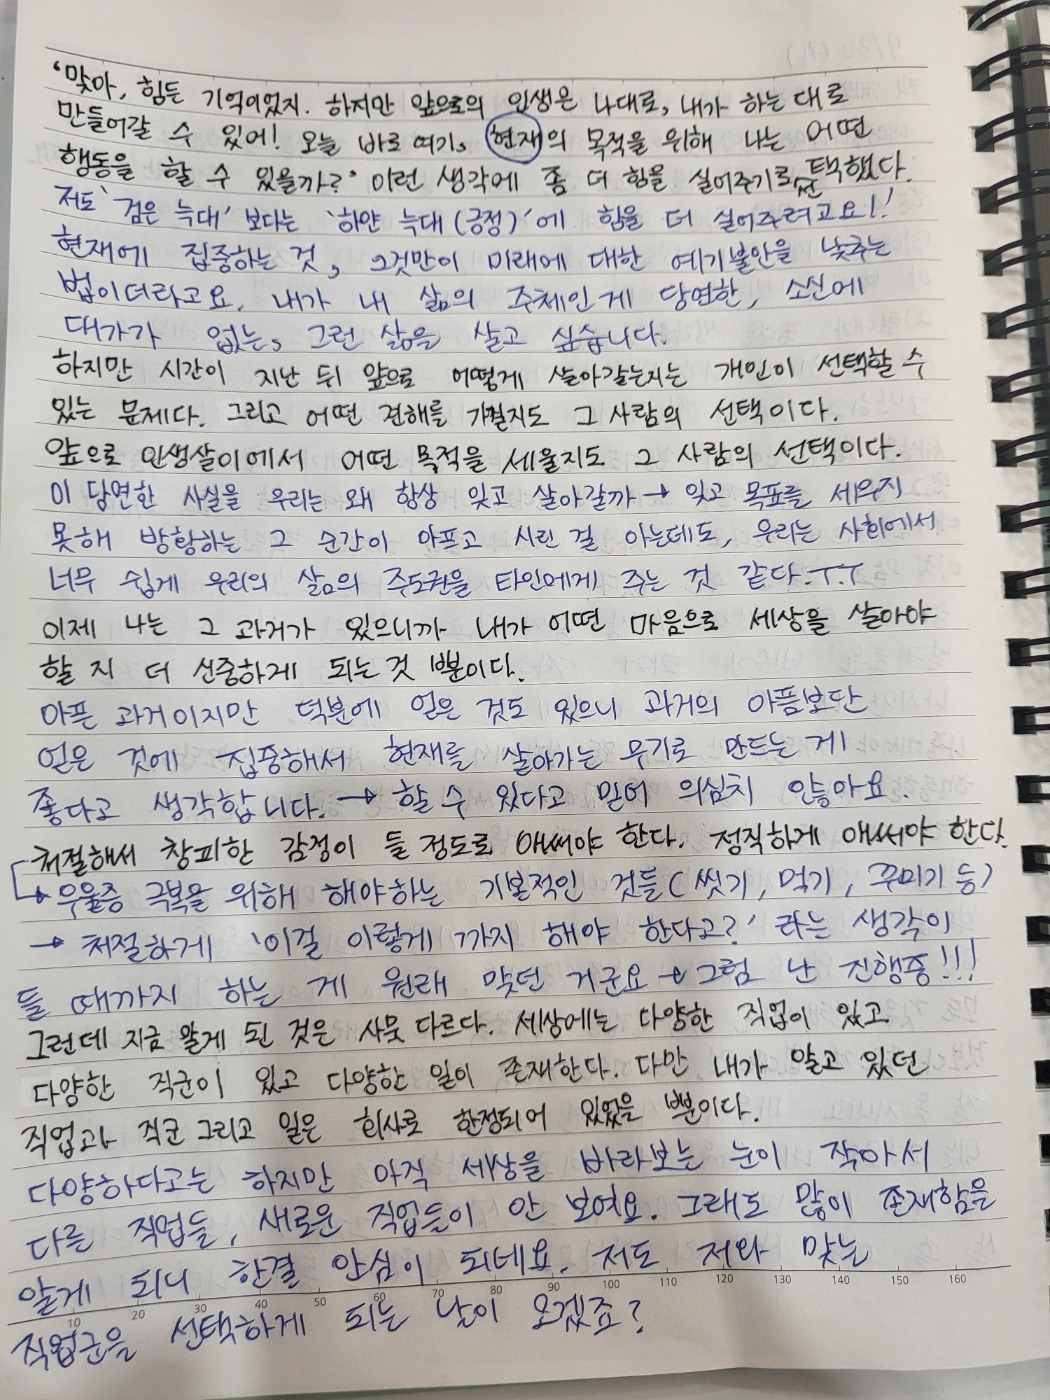 '맞아, 힘든 기억이었지. 하지만 앞으로의 인생은 나대로, 내가 하는 대로
만들어갈 수 있어! 오늘 바로 여기, 현재의 목적을 위해 나는 어떤
행동을 할 수 있을까?' 이런 생각에 좀 더 힘을 실어주기로 선택했다.
저도 '검은 늑대' 보다는 '하얀 늑대(긍정)'에 힘을 더 실어주려고요!!
현재에 집중하는 것, 그것만이 미래에 대한 예기불안을 낮추는
법이더라고요. 내가 내 삶의 주체인게 당연한, 소신에
대가가 없는, 그런 삶을 살고 싶습니다.
하지만 시간이 지난 뒤 앞으로 어떻게 살아갈는지는 개인이 선택할 수
있는 문제다. 그리고 어떤 견해를 가질지도 그 사람의 선택이다.
앞으로 인생살이에서 어떤 목적을 세울지도 그 사람의 선택이다.
이 당연한 사실을 우리는 왜 항상 잊고 살아갈까 → 잊고 목표를 세우지
못해 방황하는 그 순간이 아프고 시린 걸 아는데도, 우리는 사회에서
너무 쉽게 우리의 삶의 주도권을 타인에게 주는 것 같다.ㅜㅜ
이제 나는 그 과거가 있으니까 내가 어떤 마음으로 세상을 살아야
할 지 더 신중하게 되는 것 뿐이다.
아픈 과거이지만 덕분에 얻은 것도 있으니 과거의 아픔보단
얻은 것에 집중해서 현재를 살아가는 무기로 만드는 게
좋다고 생각합니다. → 할 수 있다고 믿어 의심치 않아요.
처절해서 창피한 감정이 들 정도로 애써야 한다. 정직하게 애써야 한다.
→ 우울증 극복을 위해 해야하는 기본적인 것들(씻기, 먹기, 꾸미기 등)
→ 처절하게 '이걸 이렇게 까지 해야 한다고?' 라는 생각이
들 때까지 하는 게 원래 맞던 거군요 → 그럼 난 진행중!!!
그런데 지금 알게 된 것은 사뭇 다르다. 세상에는 다양한 직업이 있고
다양한 직군이 있고 다양한 일이 존재한다. 다만 내가 알고 있던
직업과 직군 그리고 일은 회사로 한정되어 있었을 뿐이다.
다양하다고는 하지만 아직 세상을 바라보는 눈이 작아서
다른 직업들, 새로운 직업들이 안 보여요. 그래도 많이 존재함을
알게 되니 한결 안심이 되네요. 저도 저와 맞는
10 20 30 40 50 60 70 80 90 100 110 120 130 140 150 160
직업군을 선택하게 되는 날이 오겠죠?